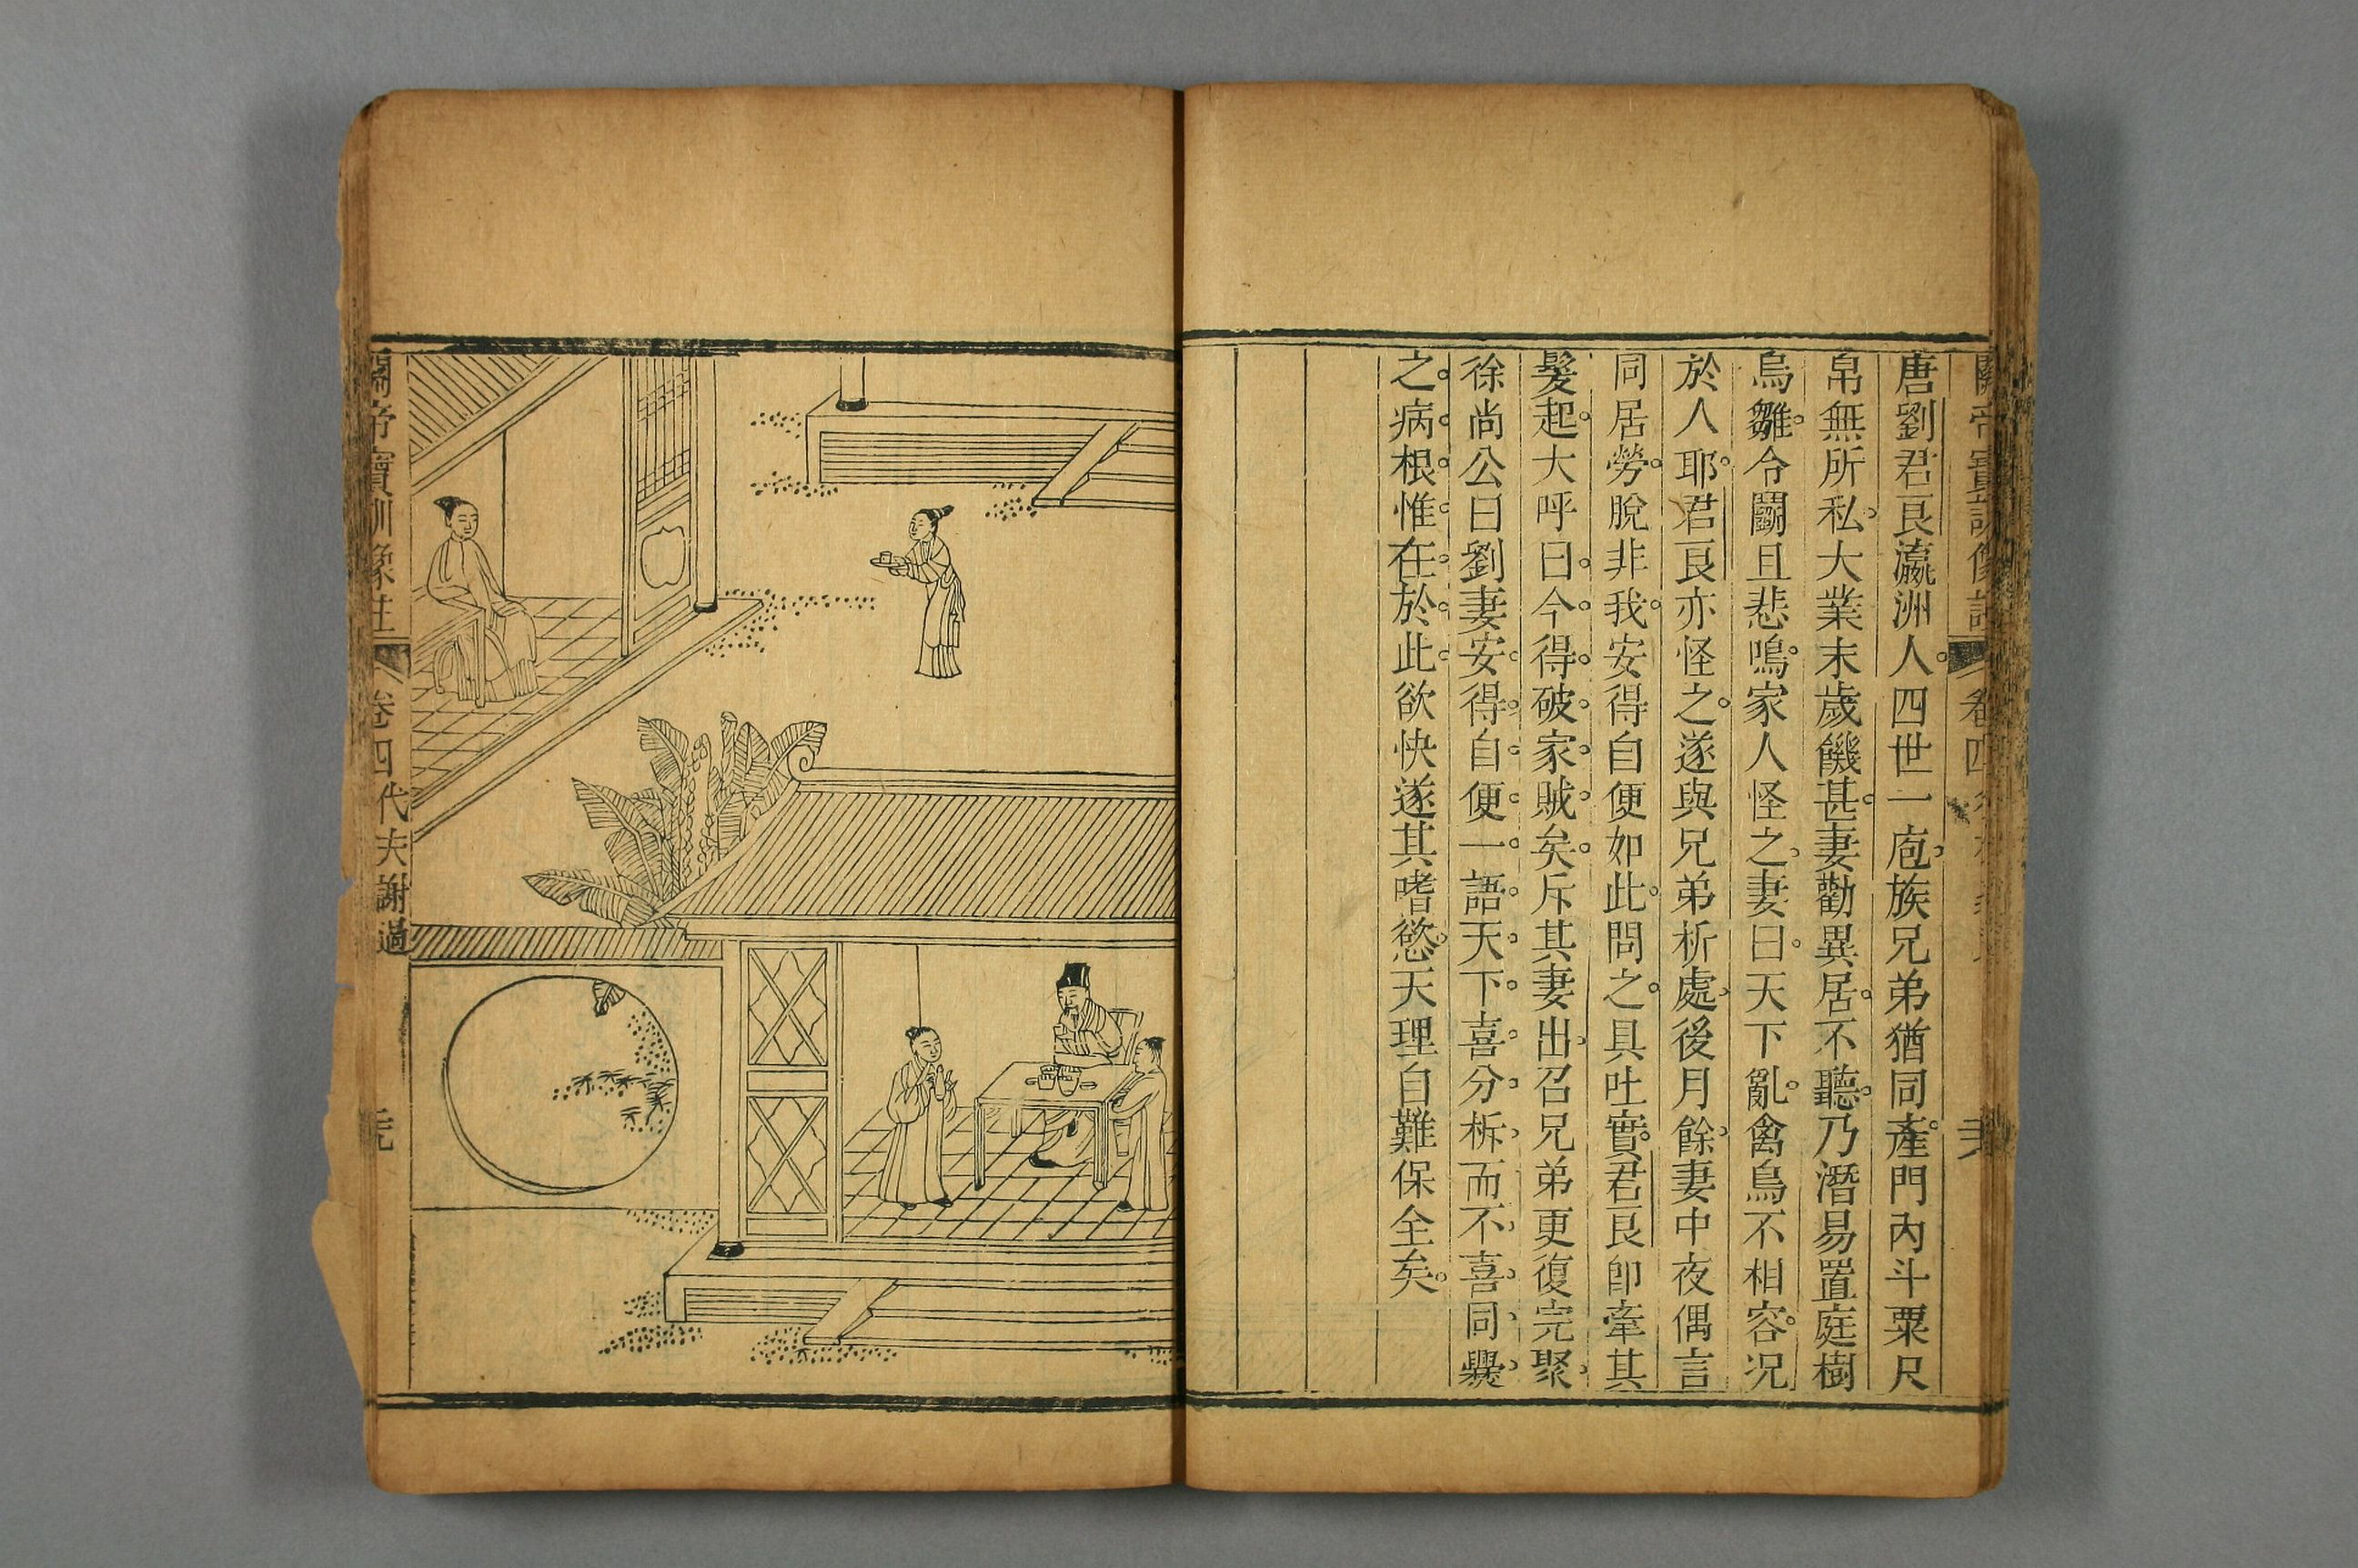 唐劉君良瀛洲人四世一庖族兄弟猶同產門內斗粟尺
帛無所私大業末歲饑甚妻勸異居不聽乃潛易置庭樹
烏雛令鬬且悲鳴家人怪之妻曰天下亂禽鳥不相容况
於人耶君良亦怪之遂與兄弟析處後月餘妻中夜偶言
同居勞脫非我安得自便如此問之具吐實君良卽牽其
髮起大呼曰今得破家賊矣斥其妻出召兄弟更復完聚
徐尚公曰劉妻安得自便一語天下喜分柝而不喜同爨
之病根惟在於此欲快遂其嗜慾天理自難保全矣
關帝寶訓像註 卷四 代夫謝過